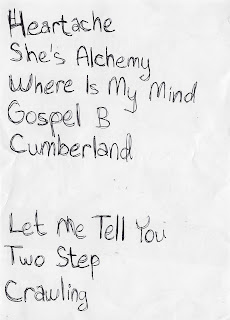 Heartache
She's Alchemy
Where Is My Mind
Gospel B
Cumberland
Let Me Tell You
Two Step
Crawling